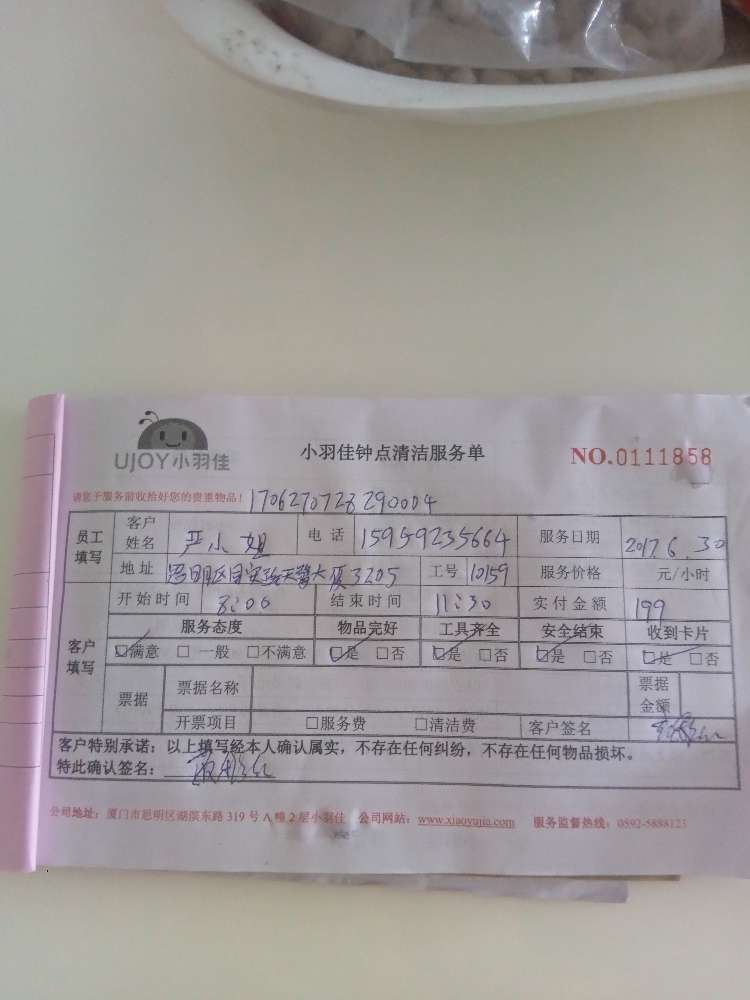 UJOY小羽佳
小羽佳钟点清洁服务单
NO.0111858
请您于服务前收拾好您的贵重物品！1706270728290004
员工填写 客户姓名 严小姐 电话 15959235664 服务日期 2017.6.30
地址 大厦3205 工号 10159 服务价格 元/小时
客户填写 开始时间 8:00 结束时间 11:30 实付金额 199
服务态度 物品完好 工具齐全 安全结束 收到卡片
☑满意 □一般 □不满意 ☑是 □否 ☑是 □否 ☑是 □否 ☑是 □否
票据 票据名称 票据金额
开票项目 □服务费 □清洁费 客户签名
客户特别承诺：以上填写经本人确认属实，不存在任何纠纷，不存在任何物品损坏。
特此确认签名：
公司地址：厦门市思明区湖滨东路319号A幢2层小羽佳 公司网站：www.xiaoyujia.com 服务监督热线：0592-5888123